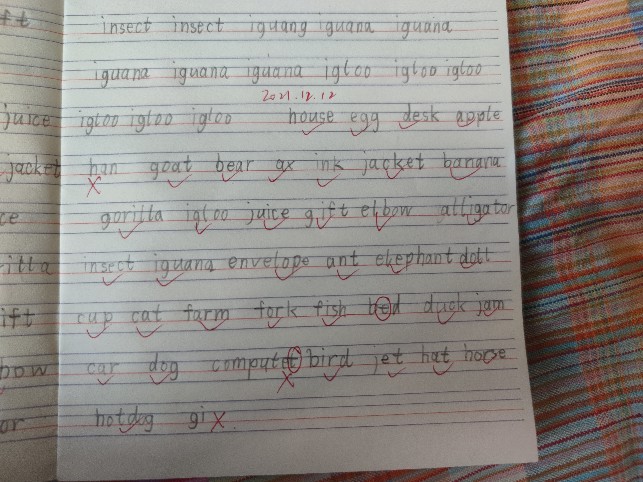 ft insect insect iguang iguana iguana
iguana iguana iguana igloo igloo igloo
2021.12.12
juice igloo igloo igloo house egg desk apple
jacket han goat bear ax ink jacket banana
ce gorilla igloo juice gift elbow alligator
illa insect iguana envelope ant elephant doll
ift cup cat farm fork fish bed duck jam
bow car dog computet bird jet hat horse
or hotdog gi